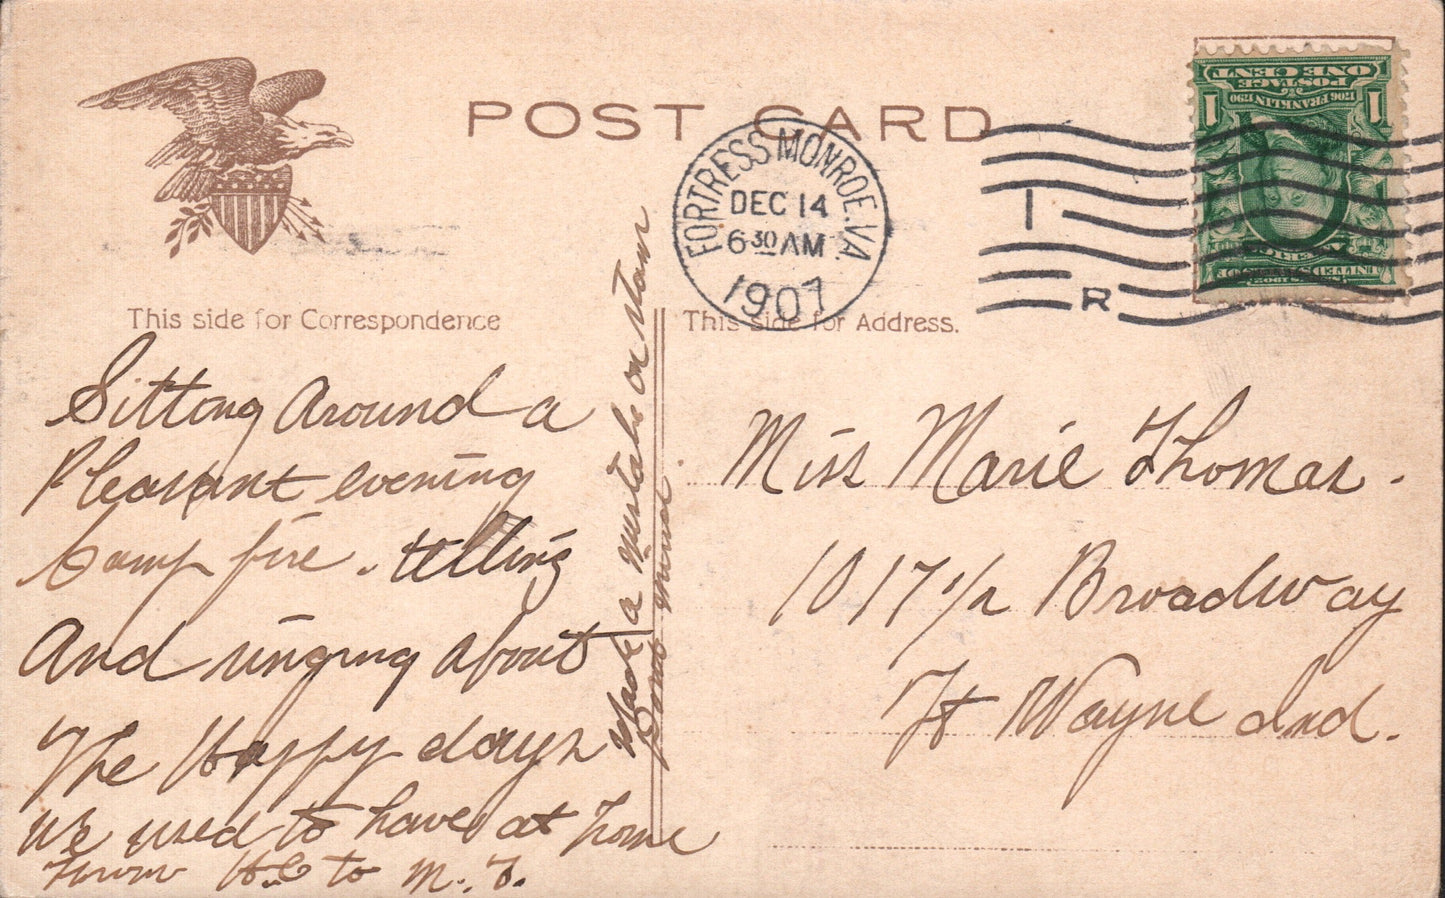 POST CARD
FORTRESS MONROE. VA.
DEC 14
6 30 AM
1907
I
R
1 1
ONE CENT
POSTAGE
1706 FRANKLIN 1790
SERIES 1902
UNITED STATES OF
AMERICA
This side for Correspondence
This side for Address.
Sitting Around a
Pleasant evening
Camp fire. telling
And singing about
The Happy days
we used to have at home
From H.C to M. T.
Made a mistake on stam
Dont mind.
Miss Marie Thomas.
1017 1/2 Broadway
Ft Wayne Ind.